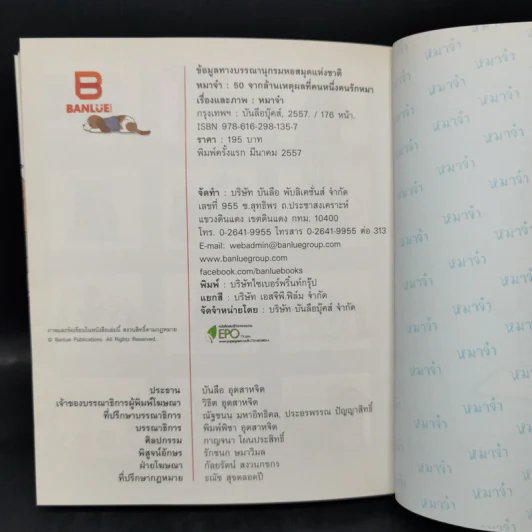 BANLUE
ข้อมูลทางบรรณานุกรมหอสมุดแห่งชาติ
หมาจ๋า : 50 จากล้านเหตุผลที่คนหนึ่งคนรักหมา
เรื่องและภาพ : หมาจ๋า
กรุงเทพฯ : บันลือบุ๊คส์, 2557. / 176 หน้า.
ISBN 978-616-298-135-7
ราคา : 195 บาท
พิมพ์ครั้งแรก มีนาคม 2557
จัดทำ : บริษัท บันลือ พับลิเคชั่นส์ จำกัด
เลขที่ 955 ซ.สุทธิพร ถ.ประชาสงเคราะห์
แขวงดินแดง เขตดินแดง กทม. 10400
โทร. 0-2641-9955 โทรสาร 0-2641-9955 ต่อ 313
E-mail: webadmin@banluegroup.com
www.banluegroup.com
facebook.com/banluebooks
พิมพ์ : บริษัทไซเบอร์พริ้นท์กรุ๊ป
แยกสี : บริษัท เอสจีพี.ฟิล์ม จำกัด
จัดจำหน่ายโดย : บริษัท บันลือบุ๊คส์ จำกัด
EPO
ภาพและข้อเขียนในหนังสือเล่มนี้ สงวนสิทธิ์ตามกฎหมาย
© Banlue Publications. All Rights Reserved.
ประธาน บันลือ อุตสาหจิต
เจ้าของบรรณาธิการผู้พิมพ์โฆษณา วิธิต อุตสาหจิต
ที่ปรึกษาบรรณาธิการ ณัฐชนน มหาอิทธิดล, ประอรพรรณ ปัญญาสิทธิ์
บรรณาธิการ พิมพ์พิชา อุตสาหจิต
ศิลปกรรม กาญจนา โผนประสิทธิ์
พิสูจน์อักษร รักชนก หมาวิมล
ฝ่ายโฆษณา กัลยรัตน์ สงวนกชกร
ที่ปรึกษากฎหมาย ธณัช สุขตลอดปี
หมาจ๋า
หมาจ๋า
หมาจ๋า
หมาจ๋า
หมาจ๋า
หมาจ๋า
หมาจ๋า
หมาจ๋า